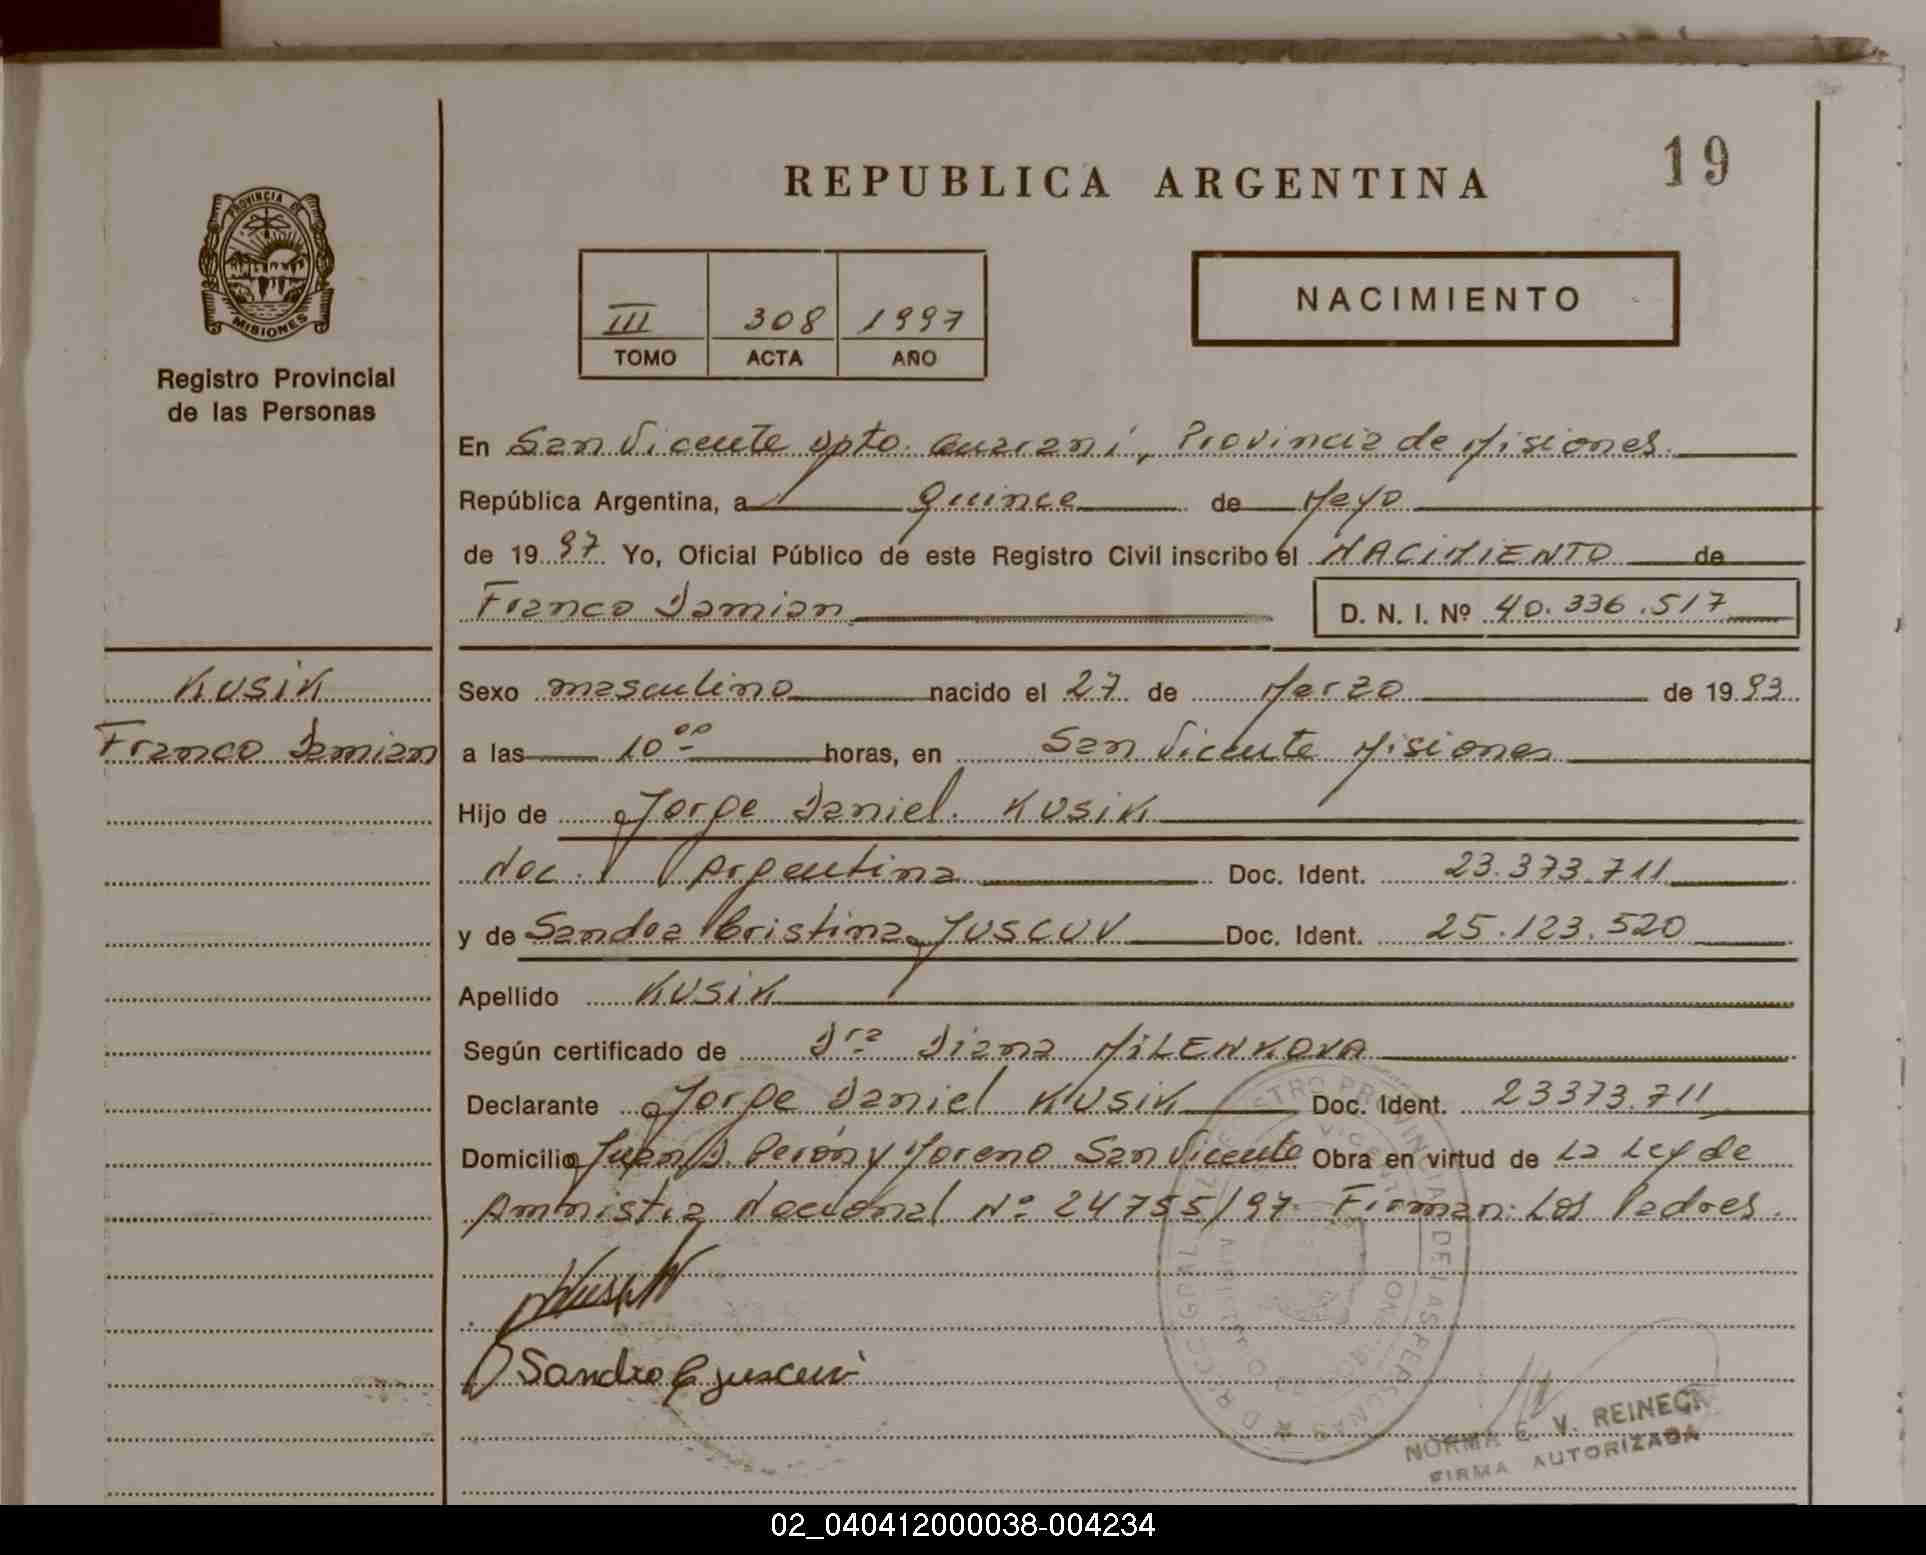 19
REPUBLICA ARGENTINA
PROVINCIA DE
MISIONES
Registro Provincial
de las Personas
III 308 1997
TOMO ACTA AÑO
NACIMIENTO
En San Vicente Dpto. Guarani, Provincia de Misiones
República Argentina, a Quince de Mayo
de 1997 Yo, Oficial Público de este Registro Civil inscribo el NACIMIENTO de
Franco Damian D. N. I. Nº 40.336.517
KUSIK
Franco Damian
Sexo masculino nacido el 27 de Marzo de 1993
a las 10 00 horas, en San Vicente Misiones
Hijo de Jorge Daniel KUSIK
Nac. Argentina Doc. Ident. 23.373.711
y de Sandra Cristina JUSCUV Doc. Ident. 25.123.520
Apellido KUSIK
Según certificado de Dra Diana MILENKOVA
Declarante Jorge Daniel KUSIK Doc. Ident. 23373.711
Domicilio Juan D. Perón y Moreno San Vicente Obra en virtud de La Ley de
Amnistia Nacional Nº 24755/97 Firman: Los Padres.
Sandra C
NORMA E. V. REINECK
FIRMA AUTORIZADA
02_040412000038-004234